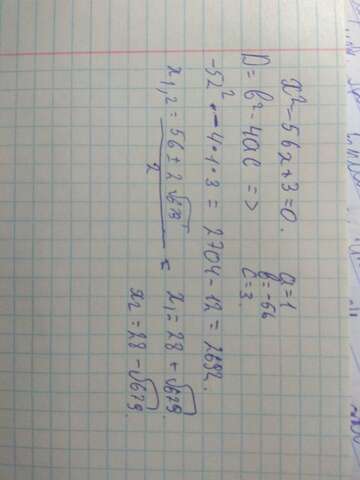 x² - 56x + 3 = 0.
a = 1
b = -56
c = 3.
D = b² - 4ac =>
-52² · -4·1·3 = 2704 - 12 = 2692.
x₁,₂ = 56 ± 2√673 / 2 =
x₁ = 28 + √673.
x₂ = 28 - √673.